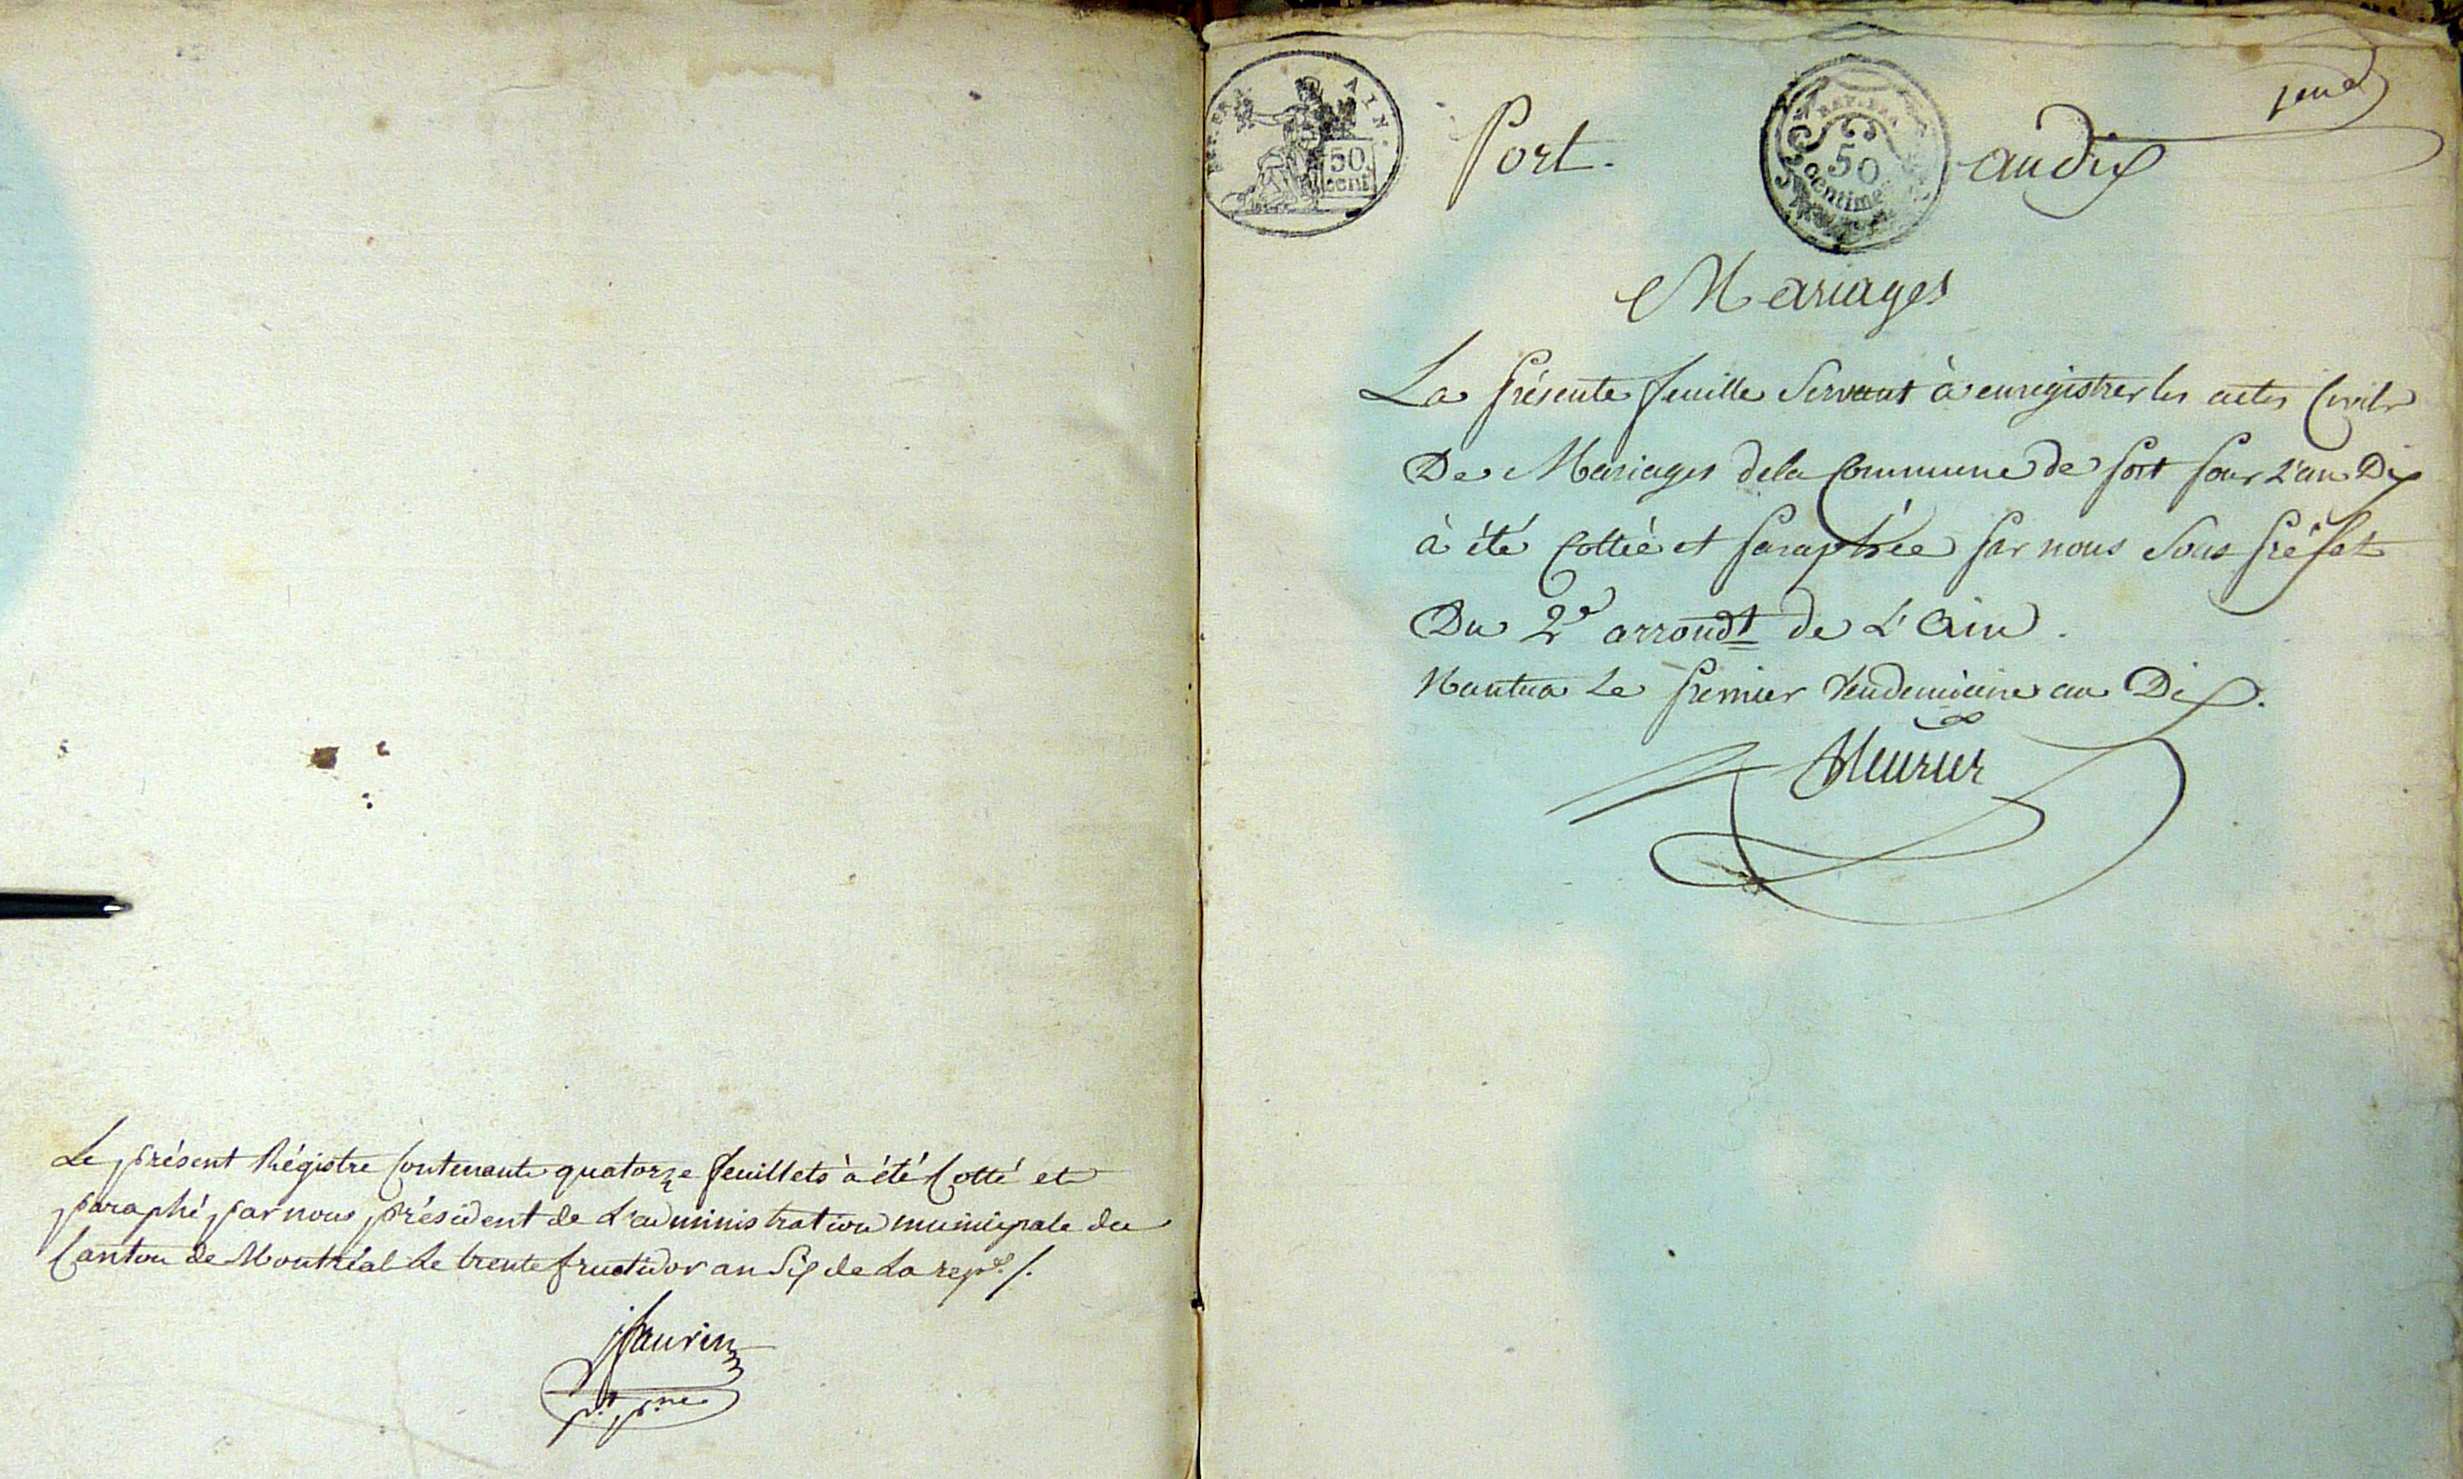 Le présent Régistre Contenant quatorze feuillets à été Cotté et
paraphé par nous président de L'administration municipale du
Canton de Montréal Le trente fructidor an Six de La rep.e /.
REP. FRA. AIN.
50
cent.
Port.
REP. FRA.
50
centimes
an dix
Mariages
La présente feuille Servant à enregistrer les actes Civils
De Mariages de la Commune de Port pour L'an Dix
à été Cottée et paraphée par nous Sous préfet
Du 2e arrondt de L'Ain.
Nantua Le premier Vendemiaire an Dix.